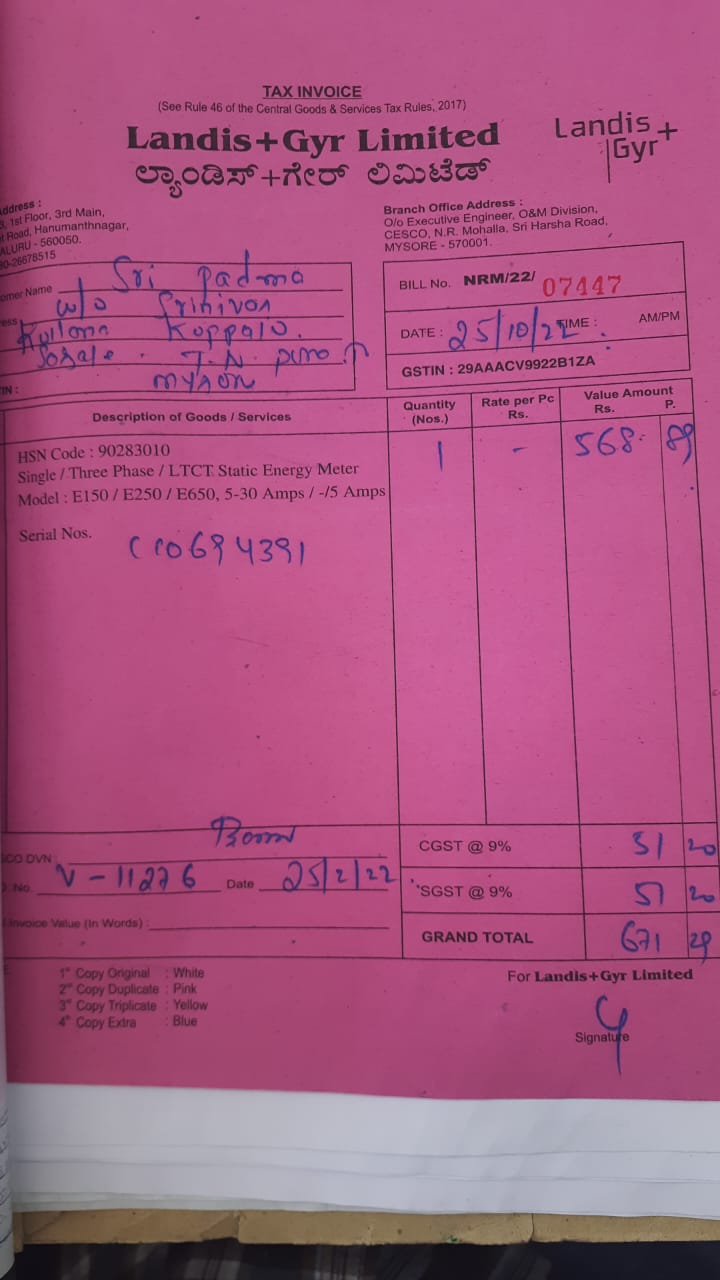 TAX INVOICE
(See Rule 46 of the Central Goods & Services Tax Rules, 2017)
Landis+Gyr Limited
ಲ್ಯಾಂಡಿಸ್+ಗೇರ್ ಲಿಮಿಟೆಡ್
Landis+
Gyr
ddress :
1st Floor, 3rd Main,
Road, Hanumanthnagar,
ALURU - 560050.
0-26678515
Branch Office Address :
O/o Executive Engineer, O&M Division,
CESCO, N.R. Mohalla, Sri Harsha Road,
MYSORE - 570001.
omer Name Sri Padma
ess w/o
Koppalu.
Sosale . T.N. pura
IN :
BILL No. NRM/22/ 07447
DATE : 25/10/22 TIME : AM/PM
GSTIN : 29AAACV9922B1ZA
Description of Goods / Services Quantity (Nos.) Rate per Pc Rs. Value Amount Rs. P.
HSN Code : 90283010 1 - 568 89
Single / Three Phase / LTCT Static Energy Meter
Model : E150 / E250 / E650, 5-30 Amps / -/5 Amps
Serial Nos.
CO DVN :
No. V-11276 Date 25/2/22
Invoice Value (In Words) :
CGST @ 9% 51 20
SGST @ 9% 51 20
GRAND TOTAL 671 29
1st Copy Original : White
2nd Copy Duplicate : Pink
3rd Copy Triplicate : Yellow
4th Copy Extra : Blue
For Landis+Gyr Limited
Signature